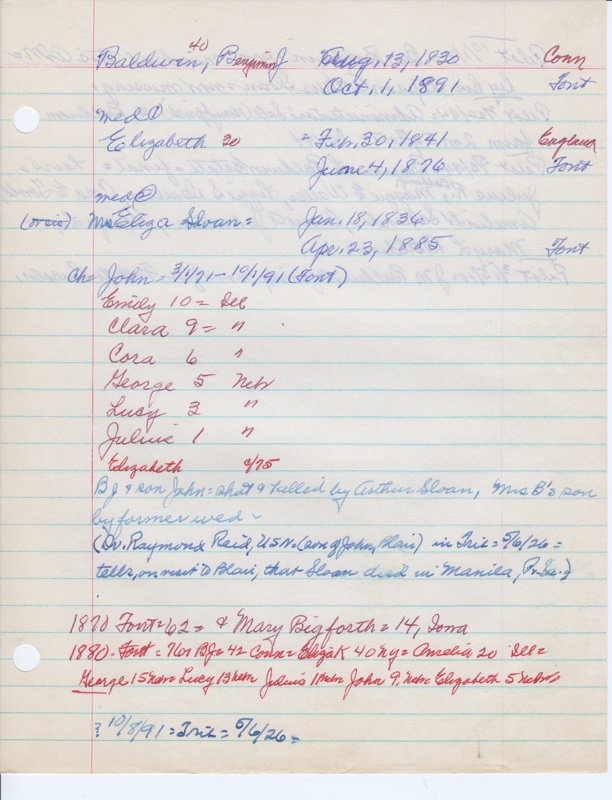 40
Baldwin, Benjamin J Aug, 13, 1830 Conn
Oct, 1, 1891 Font
med ①
Elizabeth 30 = Feb. 30, 1841 England
June 4, 1876 Font
med ②
Mrs Eliza Sloan = Jan. 18, 1836
Apr. 23, 1885 Font
Ch = John = 3/1/71 - 10/1/91 (Font)
Emily 10 = Ill
Clara 9 = "
Cora 6 "
George 5 Nebr
Lucy 3 "
Julius 1 "
Elizabeth c/75
B J & son John = shot & killed by Arthur Sloan, Mrs B's son
by former wed -
(Dr. Raymond Reid, USN. (son of John, Blair) in Trib = 5/6/26 =
tells, on visit to Blair, that Sloan died in Manila, P. Is.)
1870 Font = 62 = & Mary Bigforth = 14, Iowa
1880 - Font = 761 BJ = 42 Conn = Eliza K 40 ny = Amelia 20 Ill =
George 15 nebr = Lucy 13 nebr Julius 11 nebr John 9, nebr Elizabeth 5 Nebr
? 10/8/91 = Trib = 5/6/26 =